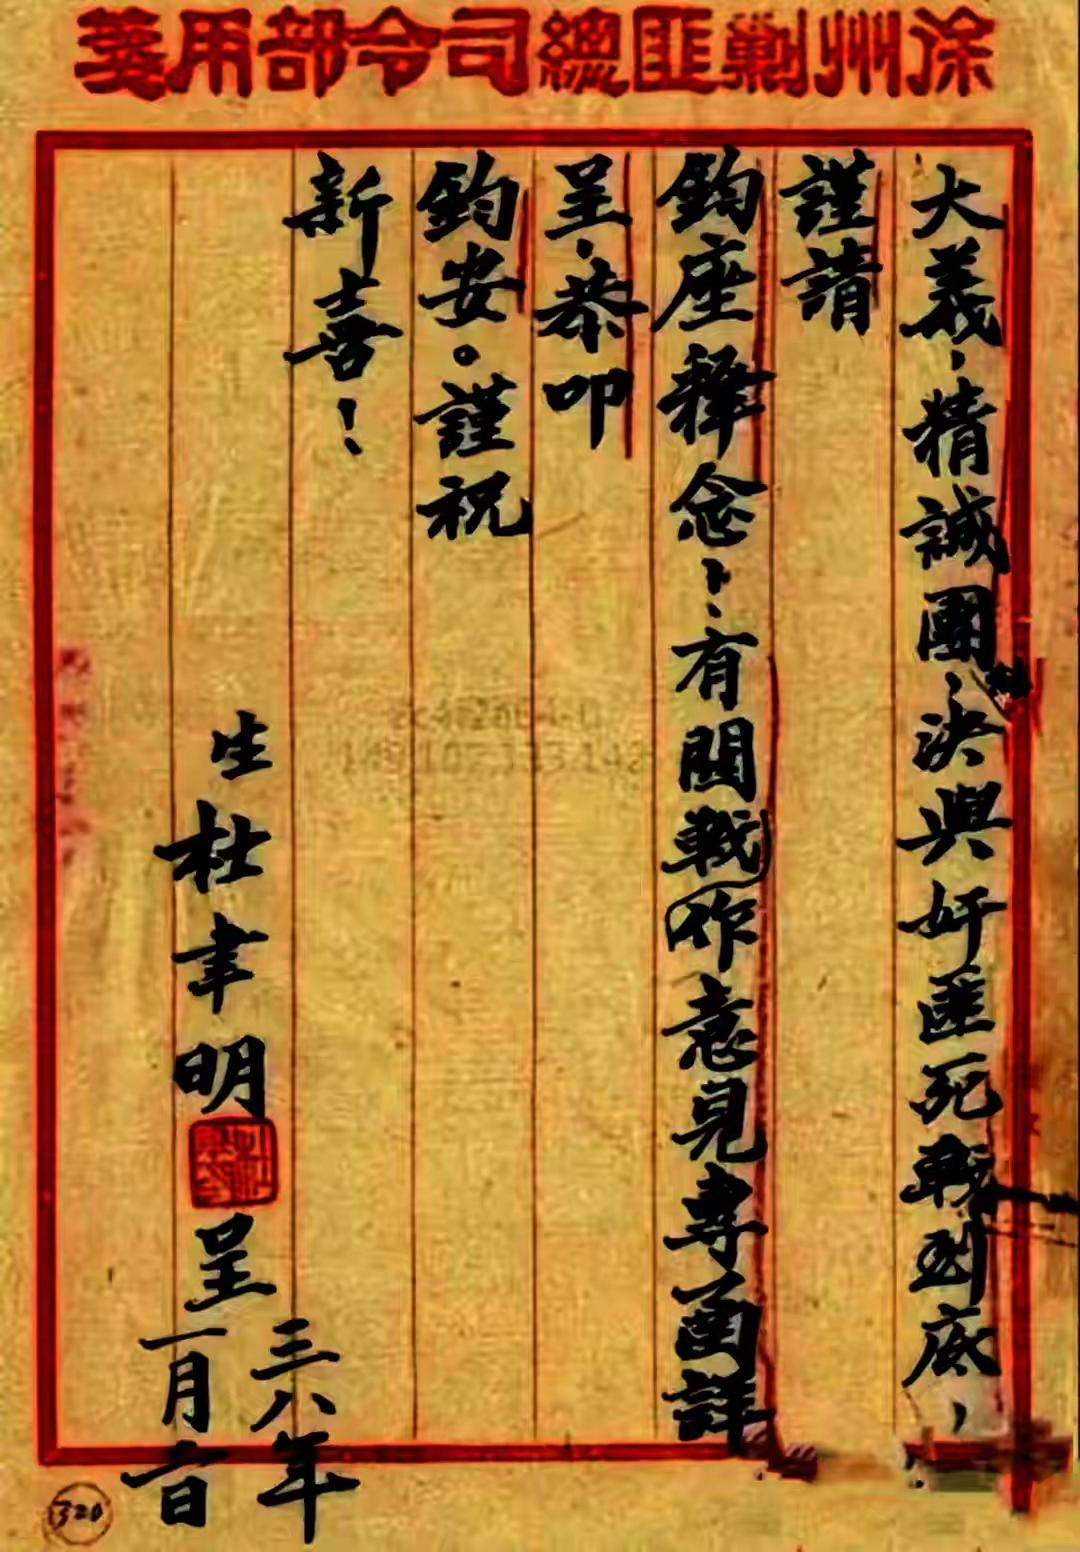 徐州剿匪總司令部用箋
大義，精誠團結，決與奸匪死戰到底，
謹請
鈞座釋念、有關戰作意見專函詳
呈，恭叩
鈞安。謹祝
新喜！
生杜聿明呈
三八年
一月 日
320